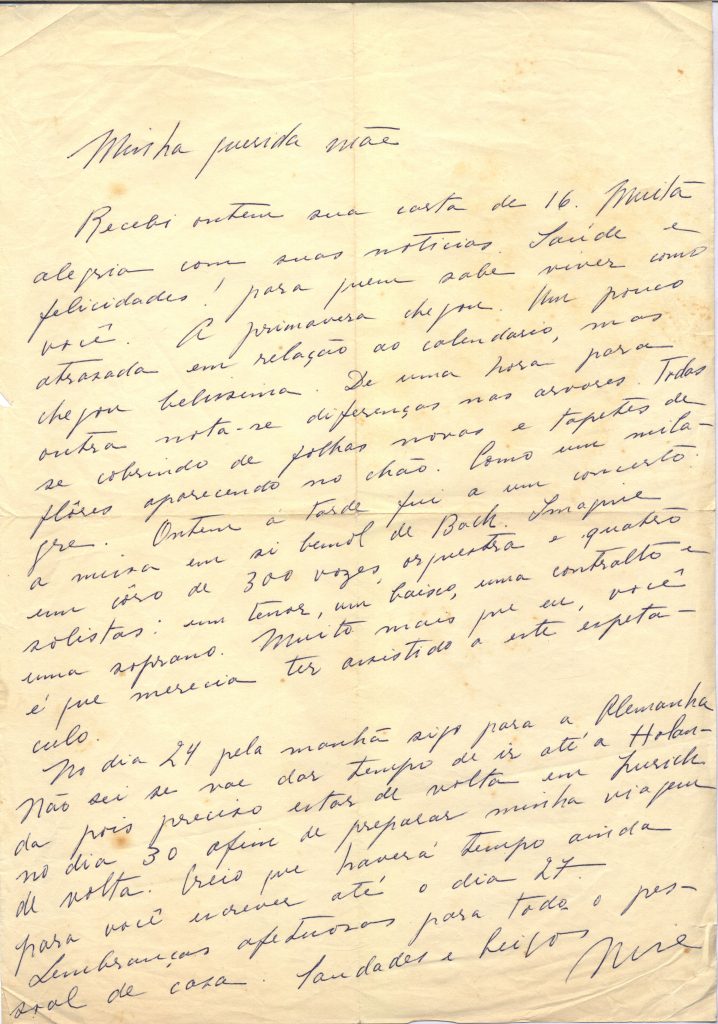 Minha querida mãe
Recebi ontem sua carta de 16. Muita
alegria com suas noticias. Saúde e
felicidades! para quem sabe viver como
você. A primavera chegou. Um pouco
atrazada em relação ao calendario, mas
chegou belissima. De uma hora para
outra nota-se diferenças nas arvores. Todas
se cobrindo de folhas novas e tapetes de
flôres aparecendo no chão. Como um mila-
gre. Ontem á tarde fui a um concerto:
a missa em si bemol de Back. Imagine
um côro de 300 vozes, orquestra e quatro
solistas: um tenor, um baixo, uma contralto e
uma soprano. Muito mais que eu, você
é que merecia ter assistido a este espeta-
culo.
No dia 24 pela manhã sigo para a Alemanha
Não sei se vae dar tempo de ir até a Holan-
da pois preciso estar de volta em Zurich
no dia 30 afim de preparar minha viagem
de volta. Creio que haverá tempo ainda
para você escrever até o dia 27.
Lembranças afetuosas para todo o pes-
soal de casa. Saudades e beijos
Nise